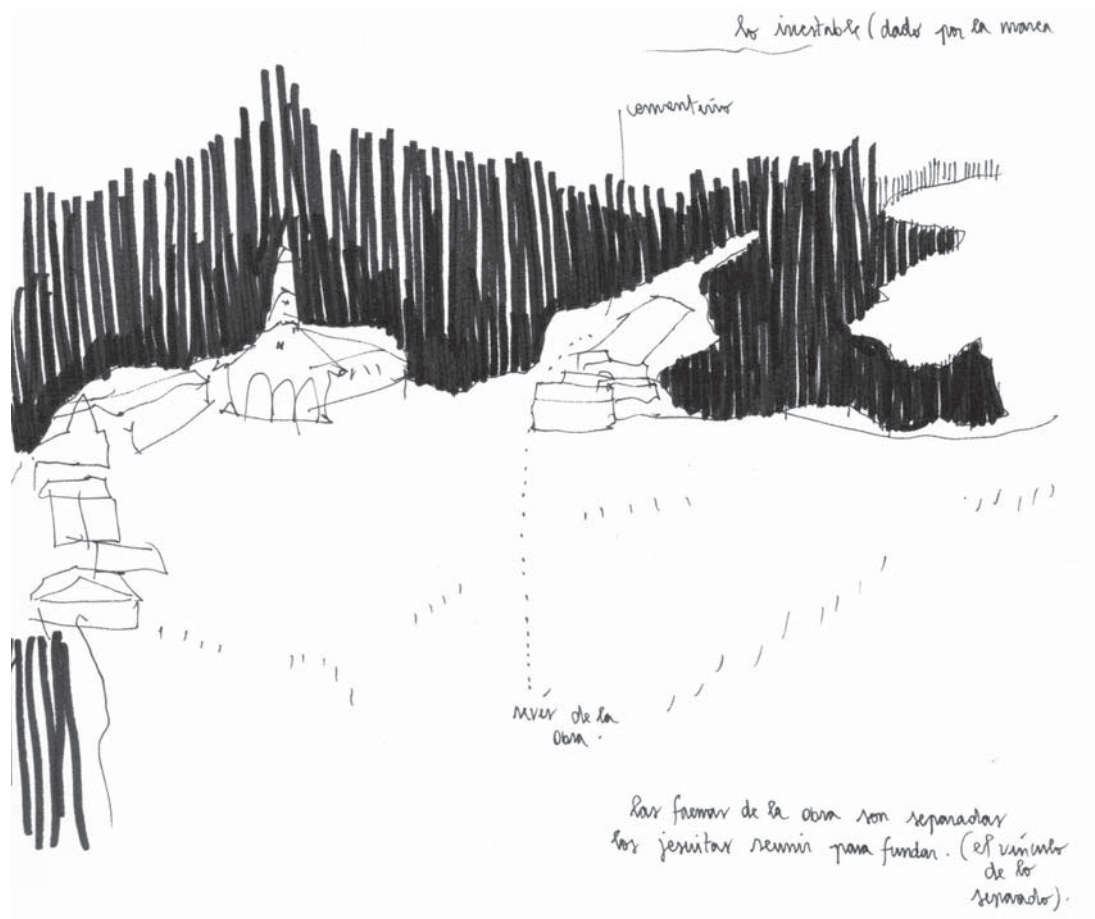 lo inestable (dado por la marea
cementerio
revés de la
obra.
las faenas de la obra son separadas
los jesuitas reunir para fundar. (el vínculo
de lo
separado).